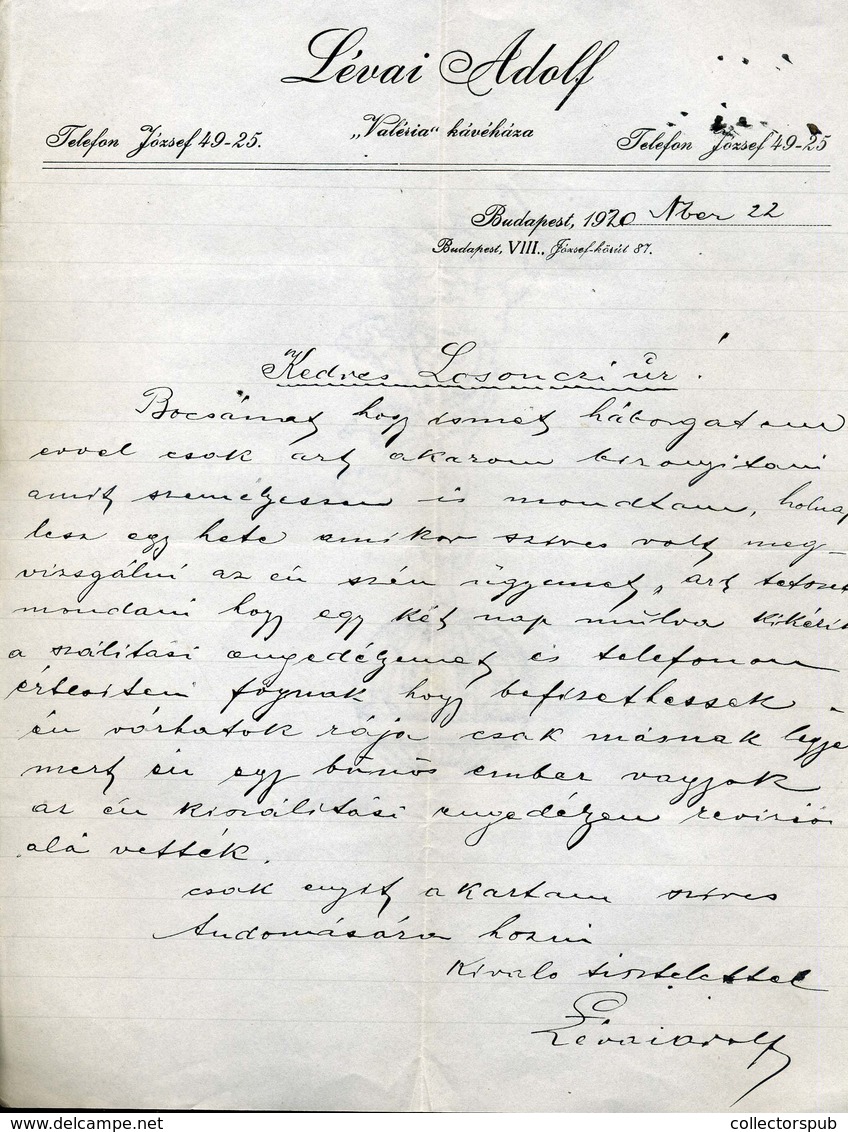 Lévai Adolf
Telefon József 49-25.
„Valéria" kávéháza
Telefon József 49-25
Budapest, 1920 Nber 22
Budapest, VIII., József-körút 87.
Kedves Losonczi úr!
Bocsánat hogy ismét háborgatom
evvel csak azt akarom bizonyitani
amit személyessen is mondtam, holnap
lesz egy hete amikor szives volt meg-
vizsgálni az én szén ügyemet, azt tetszet
mondani hogy egy két nap mulva kikérik
a szálitási engedélyemet és telefonon
értesiteni fognak hogy befizethessek
én várhatok rája csak másnak legye
mert én egy bűnös ember vagyok
az én kiszálitási engedélyem revizió
alá vették.
csak enyit akartam szives
tudomására hozni
Kivalo tisztelettel
Lévai Adolf
delcampe.net
collectorspub